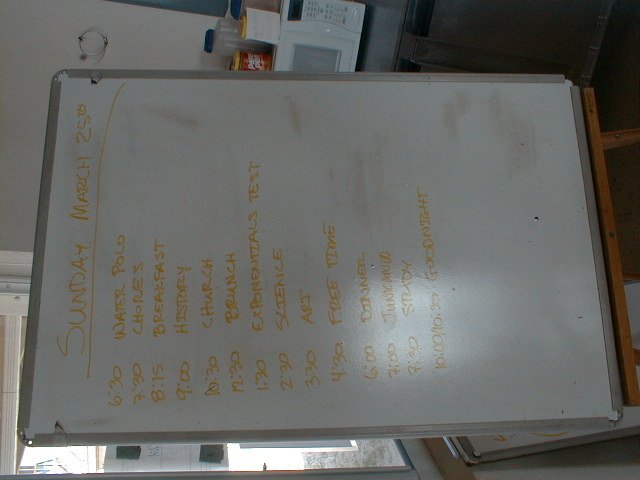 SUNDAY MARCH 25TH
6:30 WATER POLO
7:30 CHORES
8:15 BREAKFAST
9:00 HISTORY
10:30 CHURCH
12:30 BRUNCH
1:30 EXPONENTIALS TEST
2:30 SCIENCE
3:30 ART
4:30 FREE TIME
6:00 DINNER
7:00
7:30 STUDY
10:00/10:30 GOODNIGHT